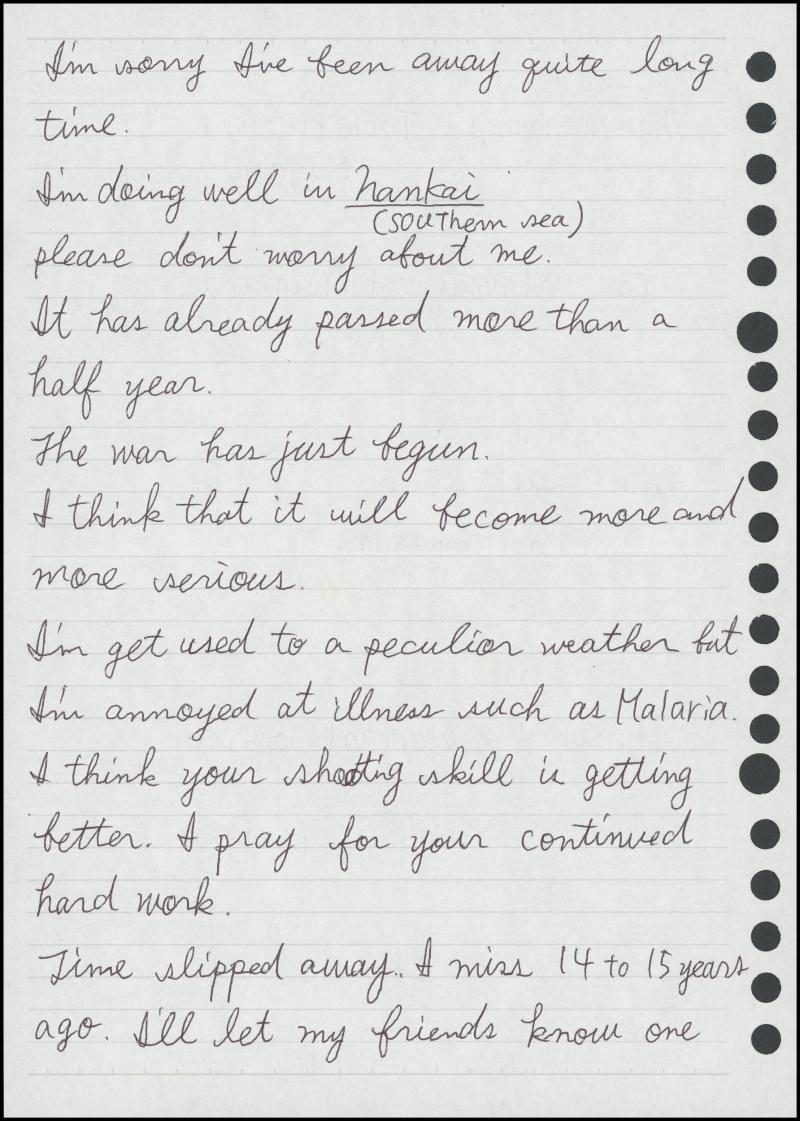 I'm sorry I've been away quite long
time.
I'm doing well in Nankai
(southern sea)
please don't worry about me.
It has already passed more than a
half year.
The war has just begun.
I think that it will become more and
more serious.
I'm get used to a peculior weather but
I'm annoyed at illness such as Malaria.
I think your shootig skill is getting
better. I pray for your continued
hard work.
Time slipped away.. I miss 14 to 15 years
ago. I'll let my friends know one